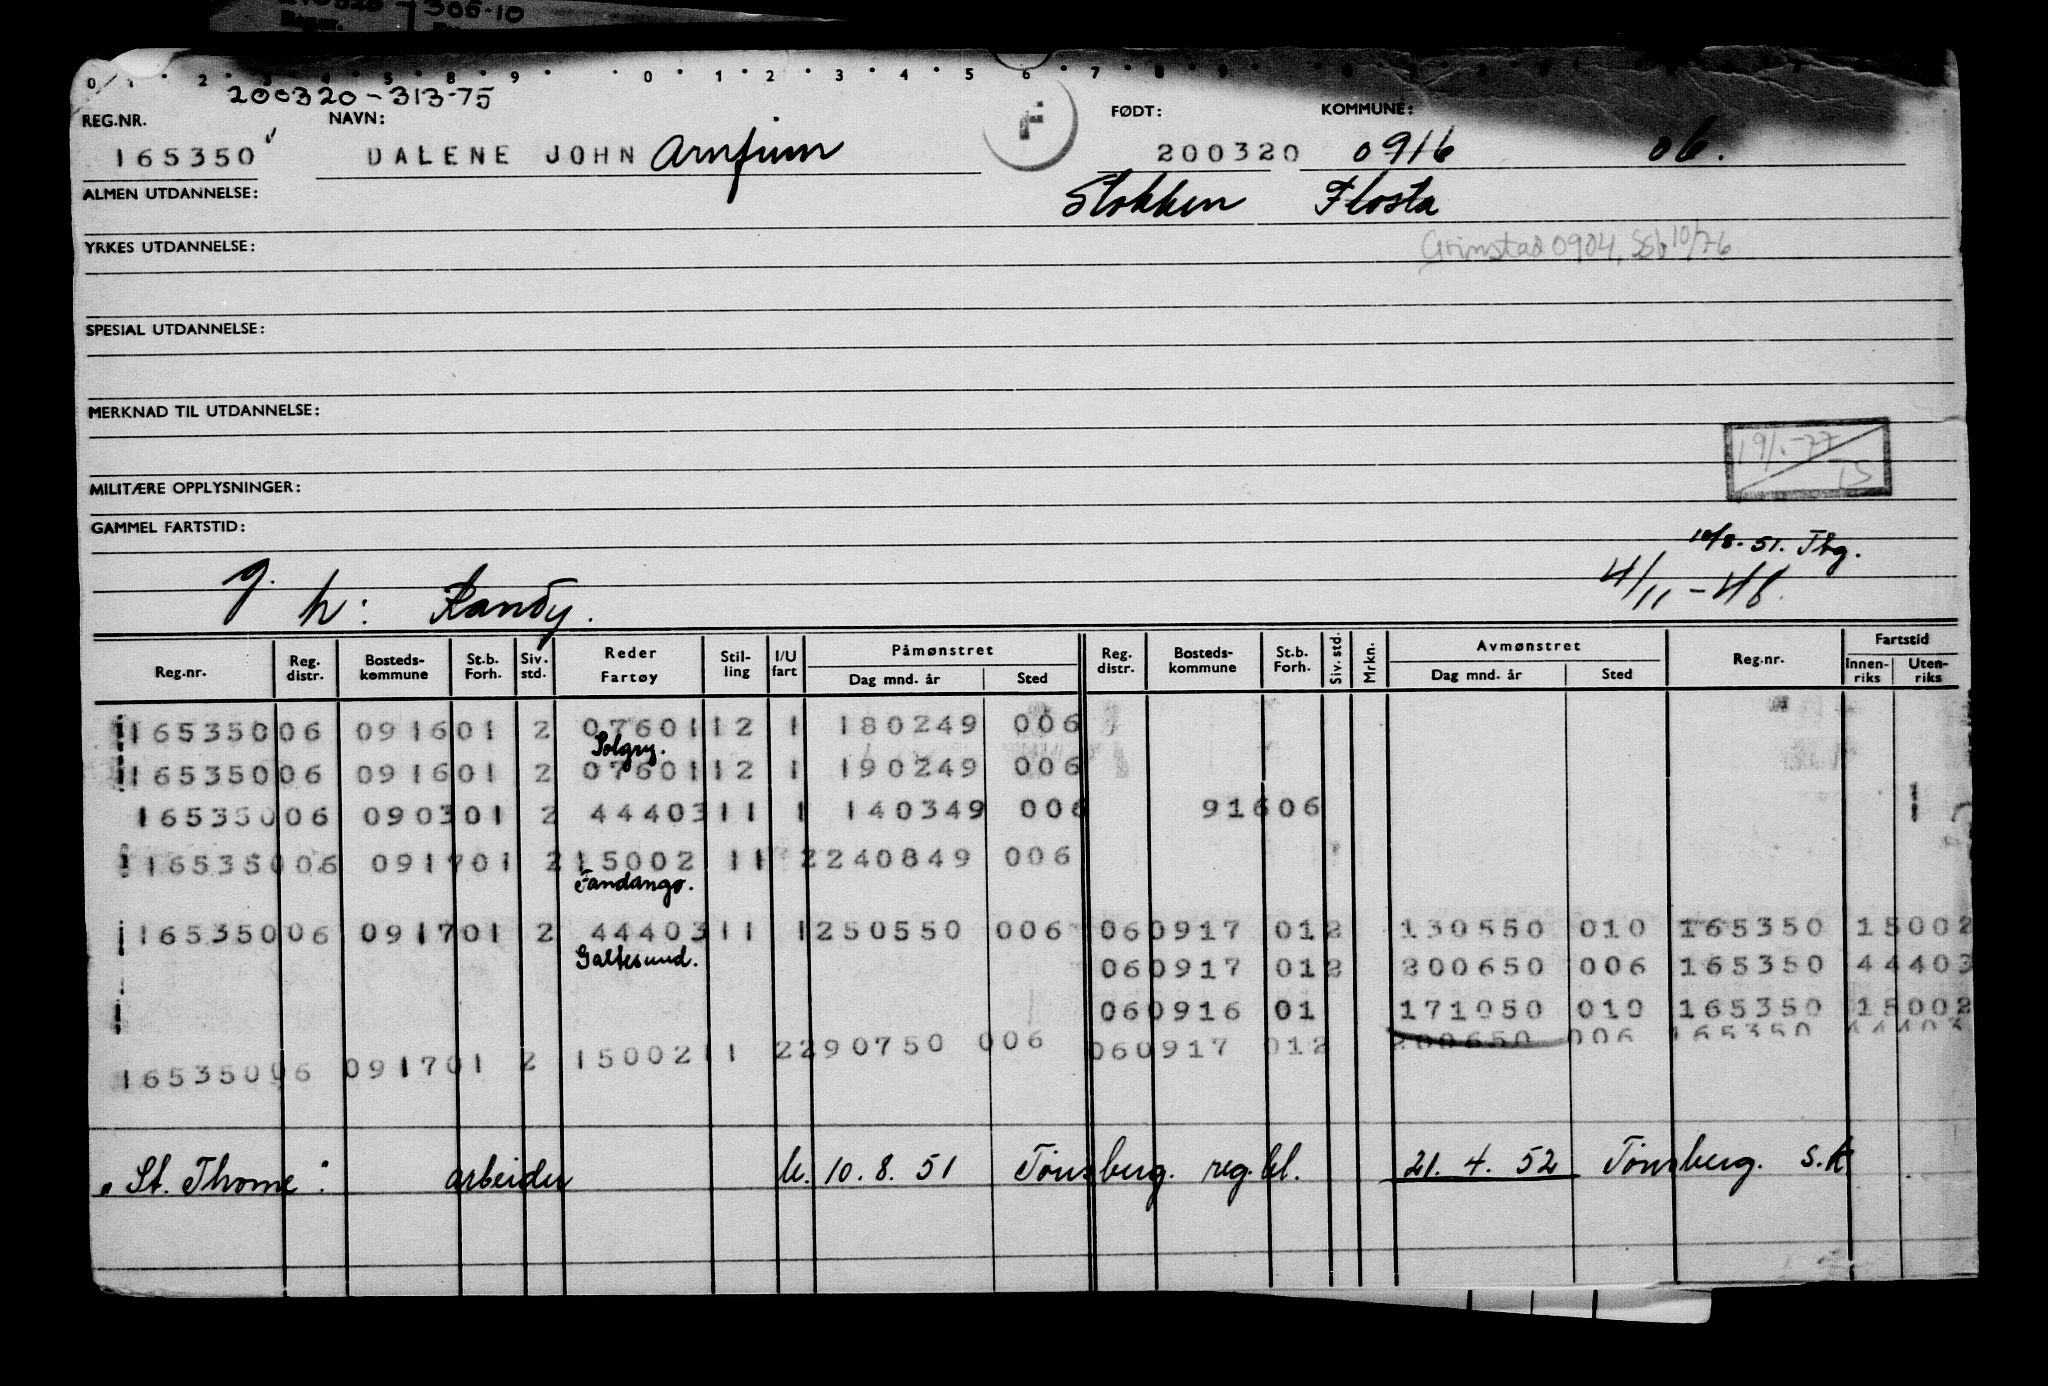 305-10
0 1 2 3 4 5 8 9 0 1 2 3 4 5 6 7
200320-313-75
REG.NR. NAVN: F FØDT: KOMMUNE:
165350 DALENE JOHN Arnfinn 200320 0916 06.
ALMEN UTDANNELSE: Stokken Flosta
YRKES UTDANNELSE: Grimstad 0904, Ssb 10/76
SPESIAL UTDANNELSE:
MERKNAD TIL UTDANNELSE:
19/1-77 TS
MILITÆRE OPPLYSNINGER:
GAMMEL FARTSTID:
10/8-51. Tbg.
g. h: Randy. 4/11-48.
Reg.nr. Reg. distr. Bosteds-kommune St.b. Forh. Siv. std. Reder Fartøy Stil-ling I/U fart Påmønstret Dag mnd. år Sted Reg. distr. Bosteds-kommune St.b. Forh. Siv. std. Mrkn. Avmønstret Dag mnd. år Sted Reg.nr. Fartstid Innen-riks Uten-riks
165350 06 0916 01 2 07601 12 1 180249 006
Solgry.
165350 06 0916 01 2 07601 12 1 190249 006
165350 06 0903 01 2 44403 11 1 140349 006 91606
165350 06 0917 01 2 15002 11 2 240849 006
Fandango.
165350 06 0917 01 2 44403 11 1 250550 006 06 0917 01 2 130550 010 165350 15002
Galtesund. 06 0917 01 2 200650 006 165350 44403
06 0916 01 171050 010 165350 15002
165350 06 0917 01 2 15002 11 2 290750 006 06 0917 01 2 200650 006 165350 44403
"St. Thome". arbeider u. 10.8.51 Tönsberg. reg.bl. 21.4.52 Tönsberg. s.k